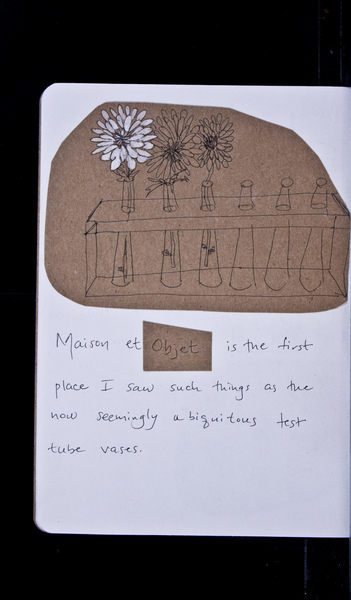 Maison et Objet is the first
place I saw such things as the
now seemingly ubiquitous test
tube vases.